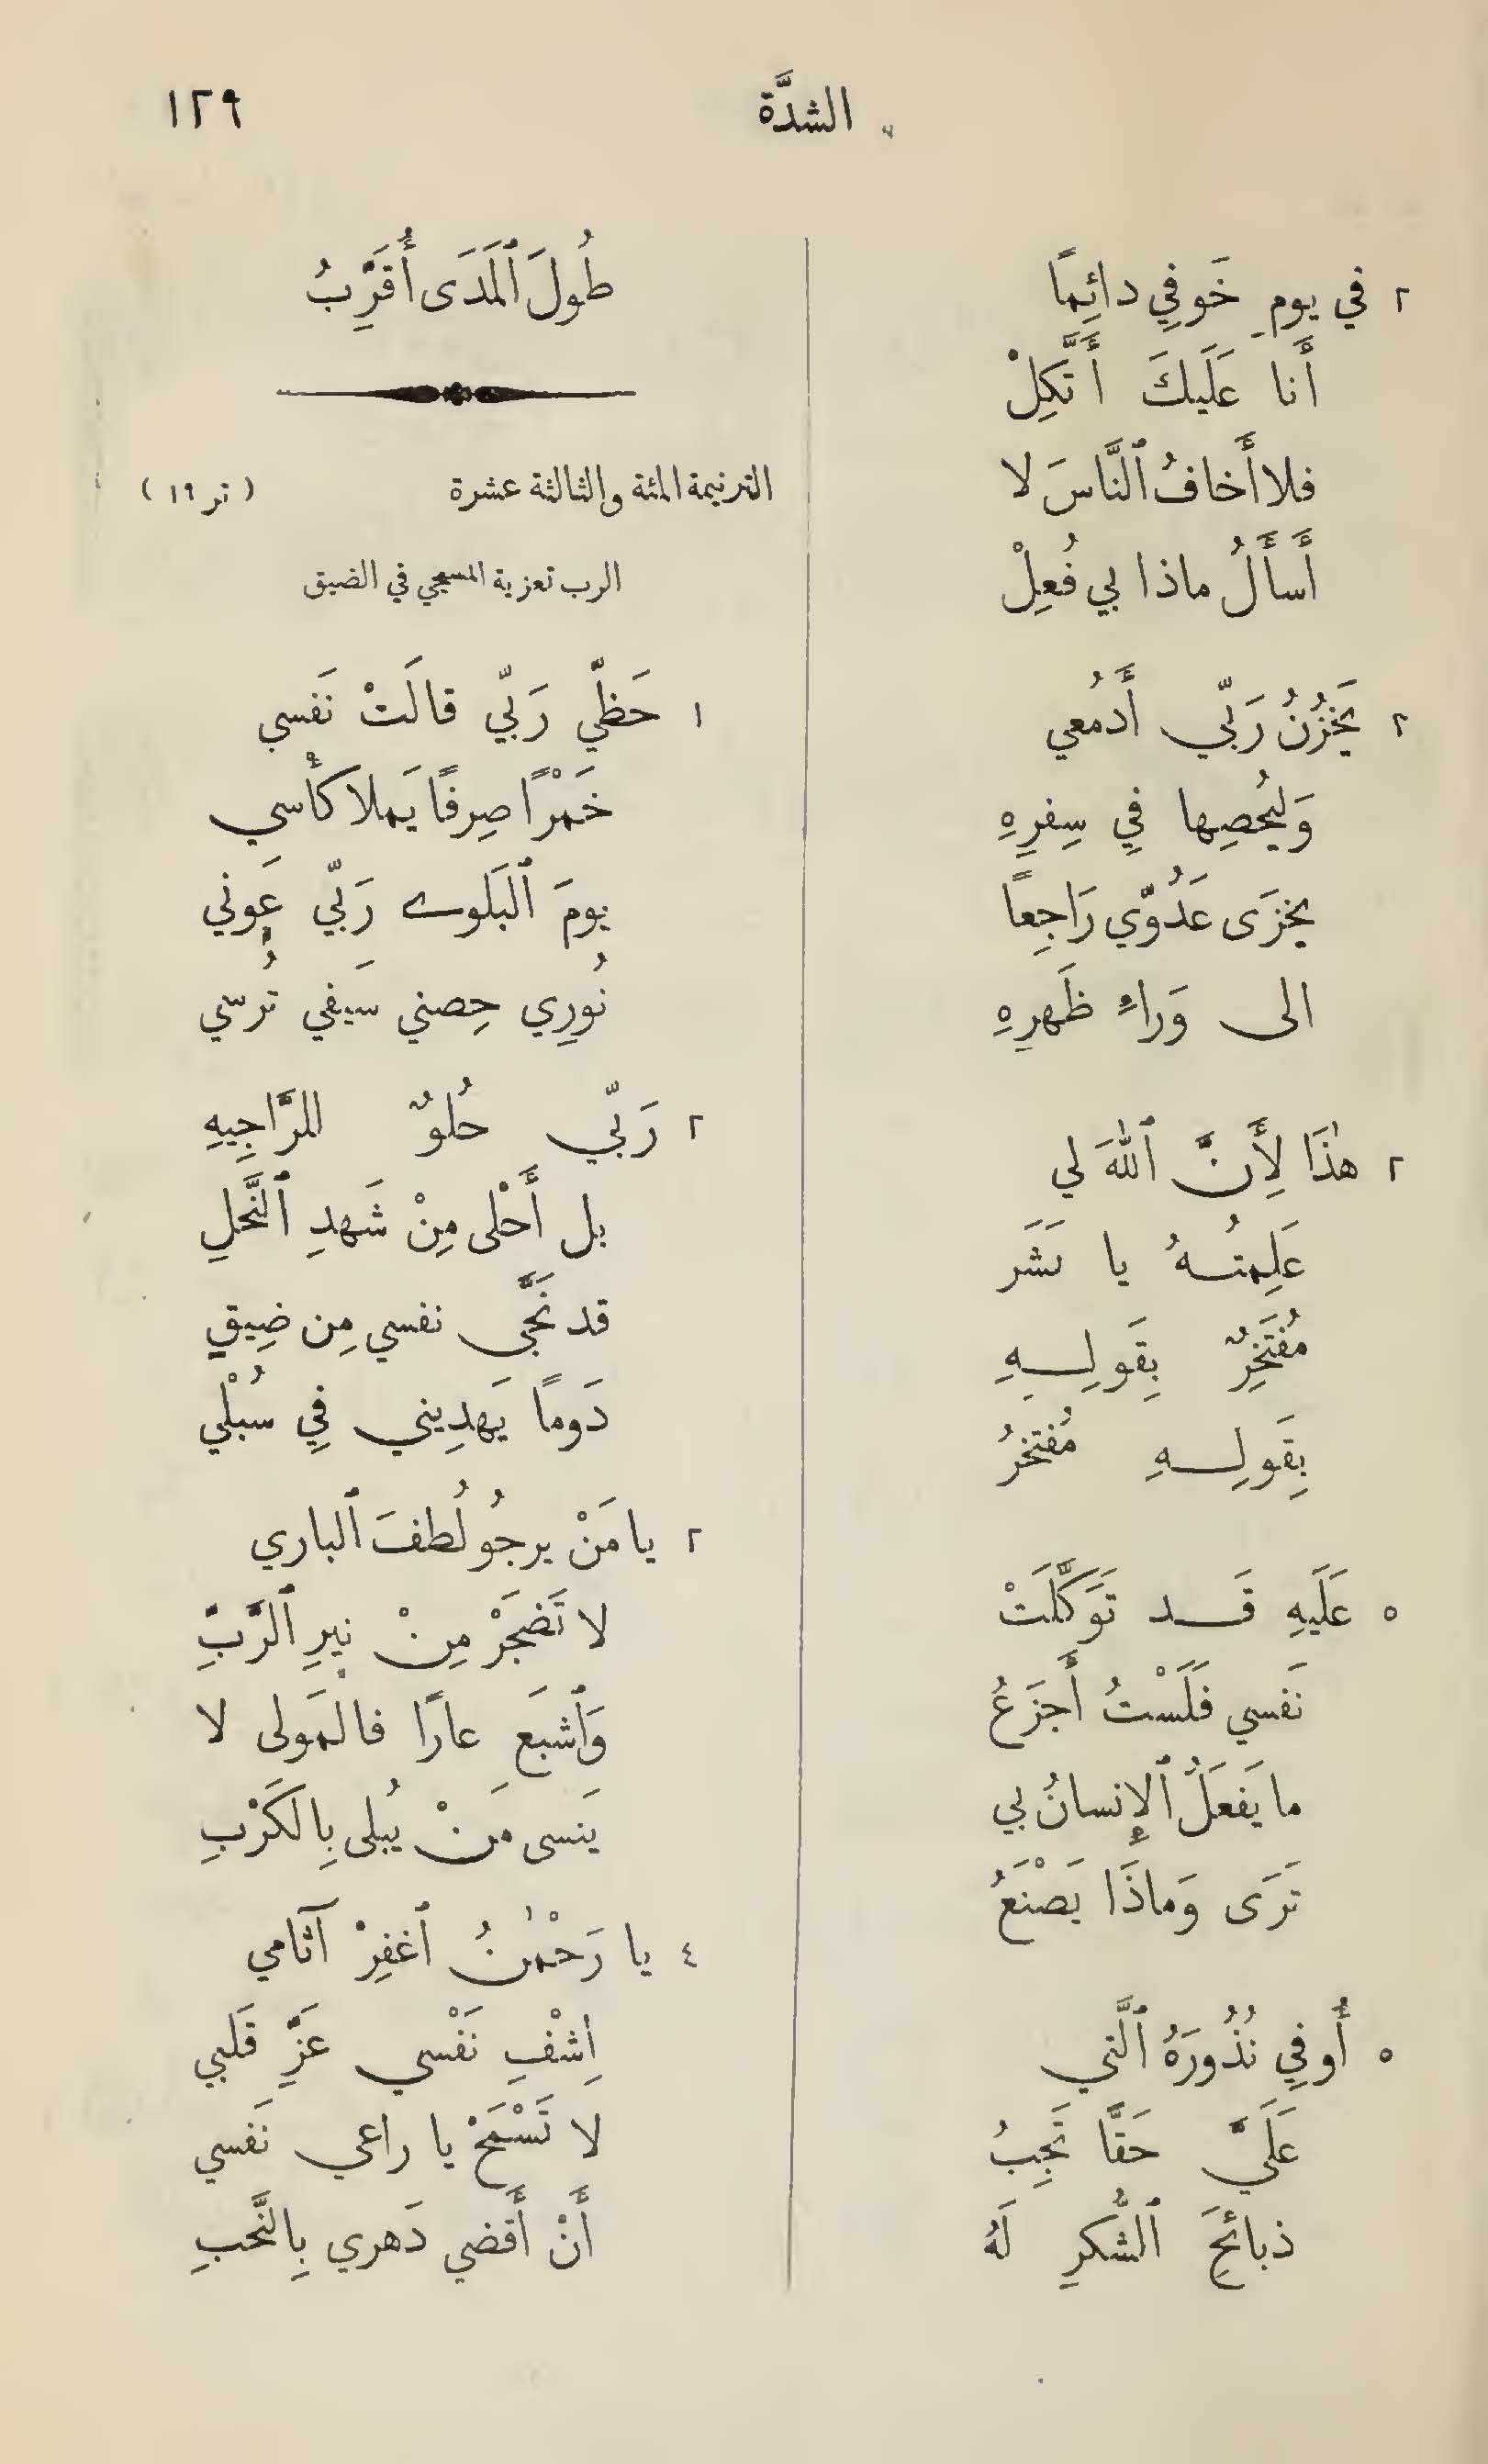 الشدَّة
١٢٩
٢ في يومِ خَوفِي دائِمًا
أَنا عَلَيكَ أَتَّكِلْ
فلا أَخافُ ٱلنَّاسَ لا
أَسأَلُ ماذا بي فُعِلْ
٢ يَخزُنُ رَبِّي أَدمُعي
وَليُحصِها فِي سِفرِهِ
يخزَى عَدُوِّي رَاجِعاً
الى وَراءِ ظَهرِهِ
٢ هٰذَا لِأَنَّ ٱللهَ لي
عَلِمتُهُ يا بَشَر
مُفتَخِرٌ بِقَولِهِ
بِقَولِهِ مُفتَخرُ
٥ عَلَيهِ قَد تَوَكَّلَتْ
نَفسي فَلَسْتُ أَجزَعُ
ما يَفعَلُ ٱلإِنسانُ بي
تَرَى وَماذَا يَصْنَعُ
٥ أُوفِي نُذُورَهُ ٱلَّتي
عَلَيَّ حَقًّا تَجِبُ
ذبائحَ ٱلشُّكرِ لَهُ
طُولَ ٱلمَدَى أُقَرِّبُ
الترنيمة المئة والثالثة عشرة (تر ١٩)
الرب تعزية المسيحي في الضيق
١ حَظِّي رَبِّي قالَتْ نَفسي
خَمْرًا صِرفًا يَملا كأسي
يومَ ٱلبَلوے رَبِّي عَوني
نُورِي حِصني سَيفي تُرسي
٢ رَبِّي حُلوٌ للرَّاجِيهِ
بل أَحْلى مِنْ شَهدِ ٱلنَّحلِ
قد نَجَّى نفسي مِن ضِيقٍ
دَومًا يَهدِيني فِي سُبْلي
٢ يا مَنْ يرجُو لُطفَ ٱلباري
لا تَضجَرْ مِنْ نِيرِ ٱلرَّبِّ
وَٱشبَع عارًا فالمَولى لا
يَنسى مَنْ يُبلى بِالكَرْبِ
٤ يا رَحْمٰنُ ٱغفِرْ آثامي
اِشْفِ نَفْسي عَزِّ قَلبي
لا تَسْمَحْ يا راعي نَفسي
أَنْ أَقضي دَهري بِالنَّحبِ